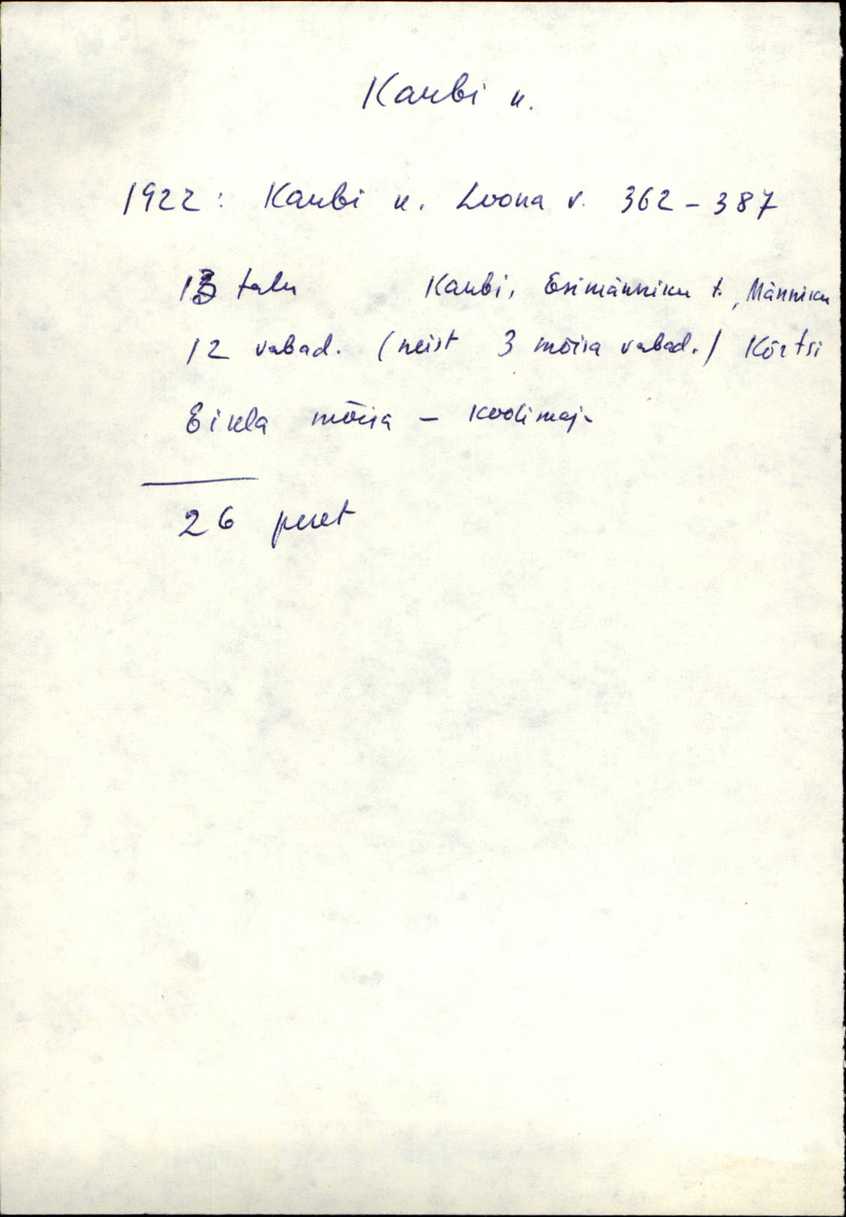 Kaubi k.
1922: Kaubi k. Loona v. 362 - 387
13 talu Kaubi, Esimänniku t., Männiku
12 vabad. (neist 3 mõisa vabad.) Kõrtsi
Eikla mõisa - koolimaja
26 peret